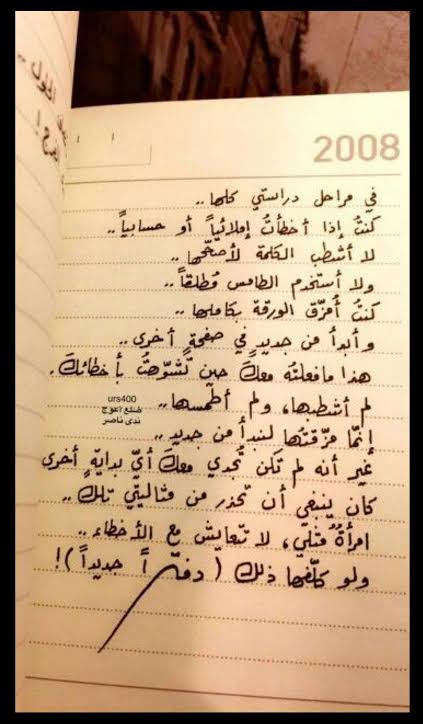 2008
في مراحل دراستي كلها..
كنتُ إذا أخطأتُ إملائياً أو حسابياً..
لا أشطب الكلمة لأصحّحها..
ولا أستخدم الطامس مُطلقاً..
كنتُ أُمزّق الورقة بكاملها..
وأبدأ من جديدٍ في صفحةٍ أخرى..
هذا مافعلتُه معكَ حين تشوّهتُ بأخطائكَ.
لم أشطبها، ولم أطمسها..
إنّما مزّقتُها لنبدأ من جديد..
غير أنه لم تكن تُجدي معكَ أيّ بدايةٍ أخرى
كان ينبغي أن تحذر من مثاليتي تلك..
امرأةٌ مثلي، لا تتعايش مع الأخطاء..
ولو كلّفها ذلك (دفتراً جديداً)!
urs400
ضلع أعوج
ندى ناصر